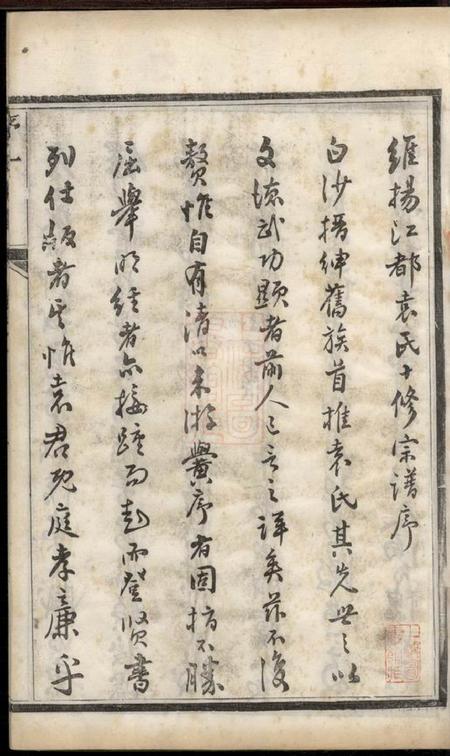 維揚江都袁氏十修宗譜序
白沙搢紳舊族首推袁氏其先世之以
文德武功顯者前人已言之詳矣茲不復
贅惟自有清以來游黌序者固指不勝
屈舉明經者亦接踵而起而登賢書
列仕版者其惟袁君既庭孝廉乎